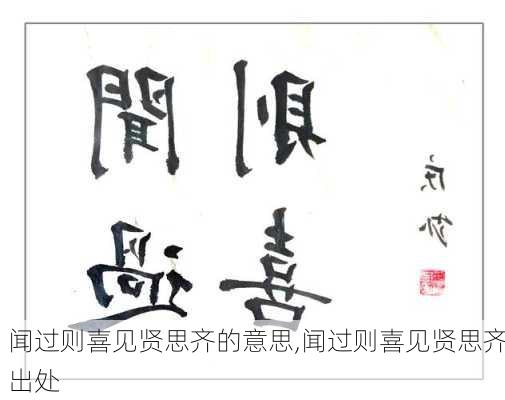 聞過
則喜
闻过则喜见贤思齐的意思,闻过则喜见贤思齐
出处